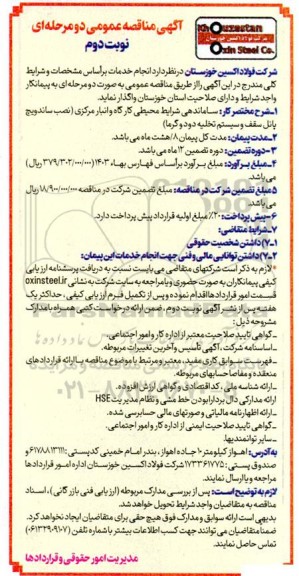 آگهی مناقصه عمومی دو مرحله‌ای
نوبت دوم
Khouzestan
Oxin Steel Co.
شرکت فولاد اکسین خوزستان در نظر دارد انجام خدمات بر اساس مشخصات و شرایط
کلی مندرج در این آگهی را از طریق مناقصه عمومی به صورت دو مرحله‌ای به پیمانکار
واجد شرایط و دارای صلاحیت استان خوزستان واگذار نماید.
۱-شرح مختصر کار: ساماندهی شرایط محیطی کار گاه وانبار مرکزی (نصب ساندویچ
پانل سقف و سیستم تخلیه دود و گرما)
۲-مدت پیمان: مدت کل پیمان ۸/هشت ماه می باشد.
۳-دوره تضمین: دوره تضمین ۱۲ ماه می باشد.
۴-مبلغ برآورد: مبلغ برآورد بر اساس فهارس بهاء ۱۴۰۳ (۳۷۹/۳۰۲/۰۰۰/۰۰۰ ریال)
می باشد.
۵-مبلغ تضمین شرکت در مناقصه: مبلغ تضمین شرکت در مناقصه ۱۸/۹۰۰/۰۰۰/۰۰۰ ریال
می باشد.
۶-پیش پرداخت: ۲۰٪ مبلغ اولیه قرارداد پیش پرداخت دارد.
۷-شرایط متقاضی:
۷-۱) داشتن شخصیت حقوقی
۷-۲) داشتن توانایی مالی و فنی جهت انجام خدمات این پیمان:
* لازم به ذکر است شرکتهای متقاضی می بایست نسبت به دریافت پرسشنامه ارزیابی
کیفی پیمانکاران به صورت حضوری و یا مراجعه به سایت شرکت به نشانی oxinsteel.ir
قسمت امور قراردادها اقدام نموده و پس از تکمیل فرم ارزیابی کیفی، حداکثر یک
هفته پس از نشر آگهی نوبت دوم، ضمن ارائه درخواست کتبی همراه با مدارک
مشروحه ذیل:
-گواهی تایید صلاحیت معتبر از اداره کار و امور اجتماعی.
-اساسنامه شرکت، آگهی تأسیس و آخرین تغییرات مربوطه.
-فهرست سوابق کاری مفید، معتبر و مرتبط با موضوع مناقصه با ارائه قراردادهای
منعقده و مفاصا حسابهای مربوطه.
-ارائه شناسه ملی، کد اقتصادی و گواهی ارزش افزوده.
-ارائه مدارکی دال بر دارا بودن خط مشی و نظام مدیریت HSE
-ارائه اظهارنامه مالیاتی و صورتهای مالی حسابرسی شده.
-گواهی تایید صلاحیت ایمنی از اداره کار و امور اجتماعی.
-سایر توانمندیها.
به آدرس: اهواز کیلومتر ۱۰ جاده اهواز، بندر امام خمینی کدپستی: ۶۱۷۸۸۱۳۱۱۱ و
صندوق پستی: ۱۷۳۳۶۱۷۷۵ شرکت فولاد اکسین خوزستان اداره امور قراردادها
مراجعه و یا ارسال نمایند.
لازم به توضیح است: پس از بررسی مدارک مربوطه (ارزیابی فنی بازرگانی)، اسناد
مناقصه به متقاضیان واجد شرایط تحویل خواهد شد.
بدیهی است ارائه سوابق و مدارک فوق هیچ حقی برای متقاضیان ایجاد نخواهد کرد.
ضمنا متقاضیان می توانند جهت کسب اطلاعات بیشتر با شماره تلفن (۰۶۱۳۲۹۰۹۱۰۷)
تماس حاصل نمایند.
مدیریت امور حقوقی و قراردادها